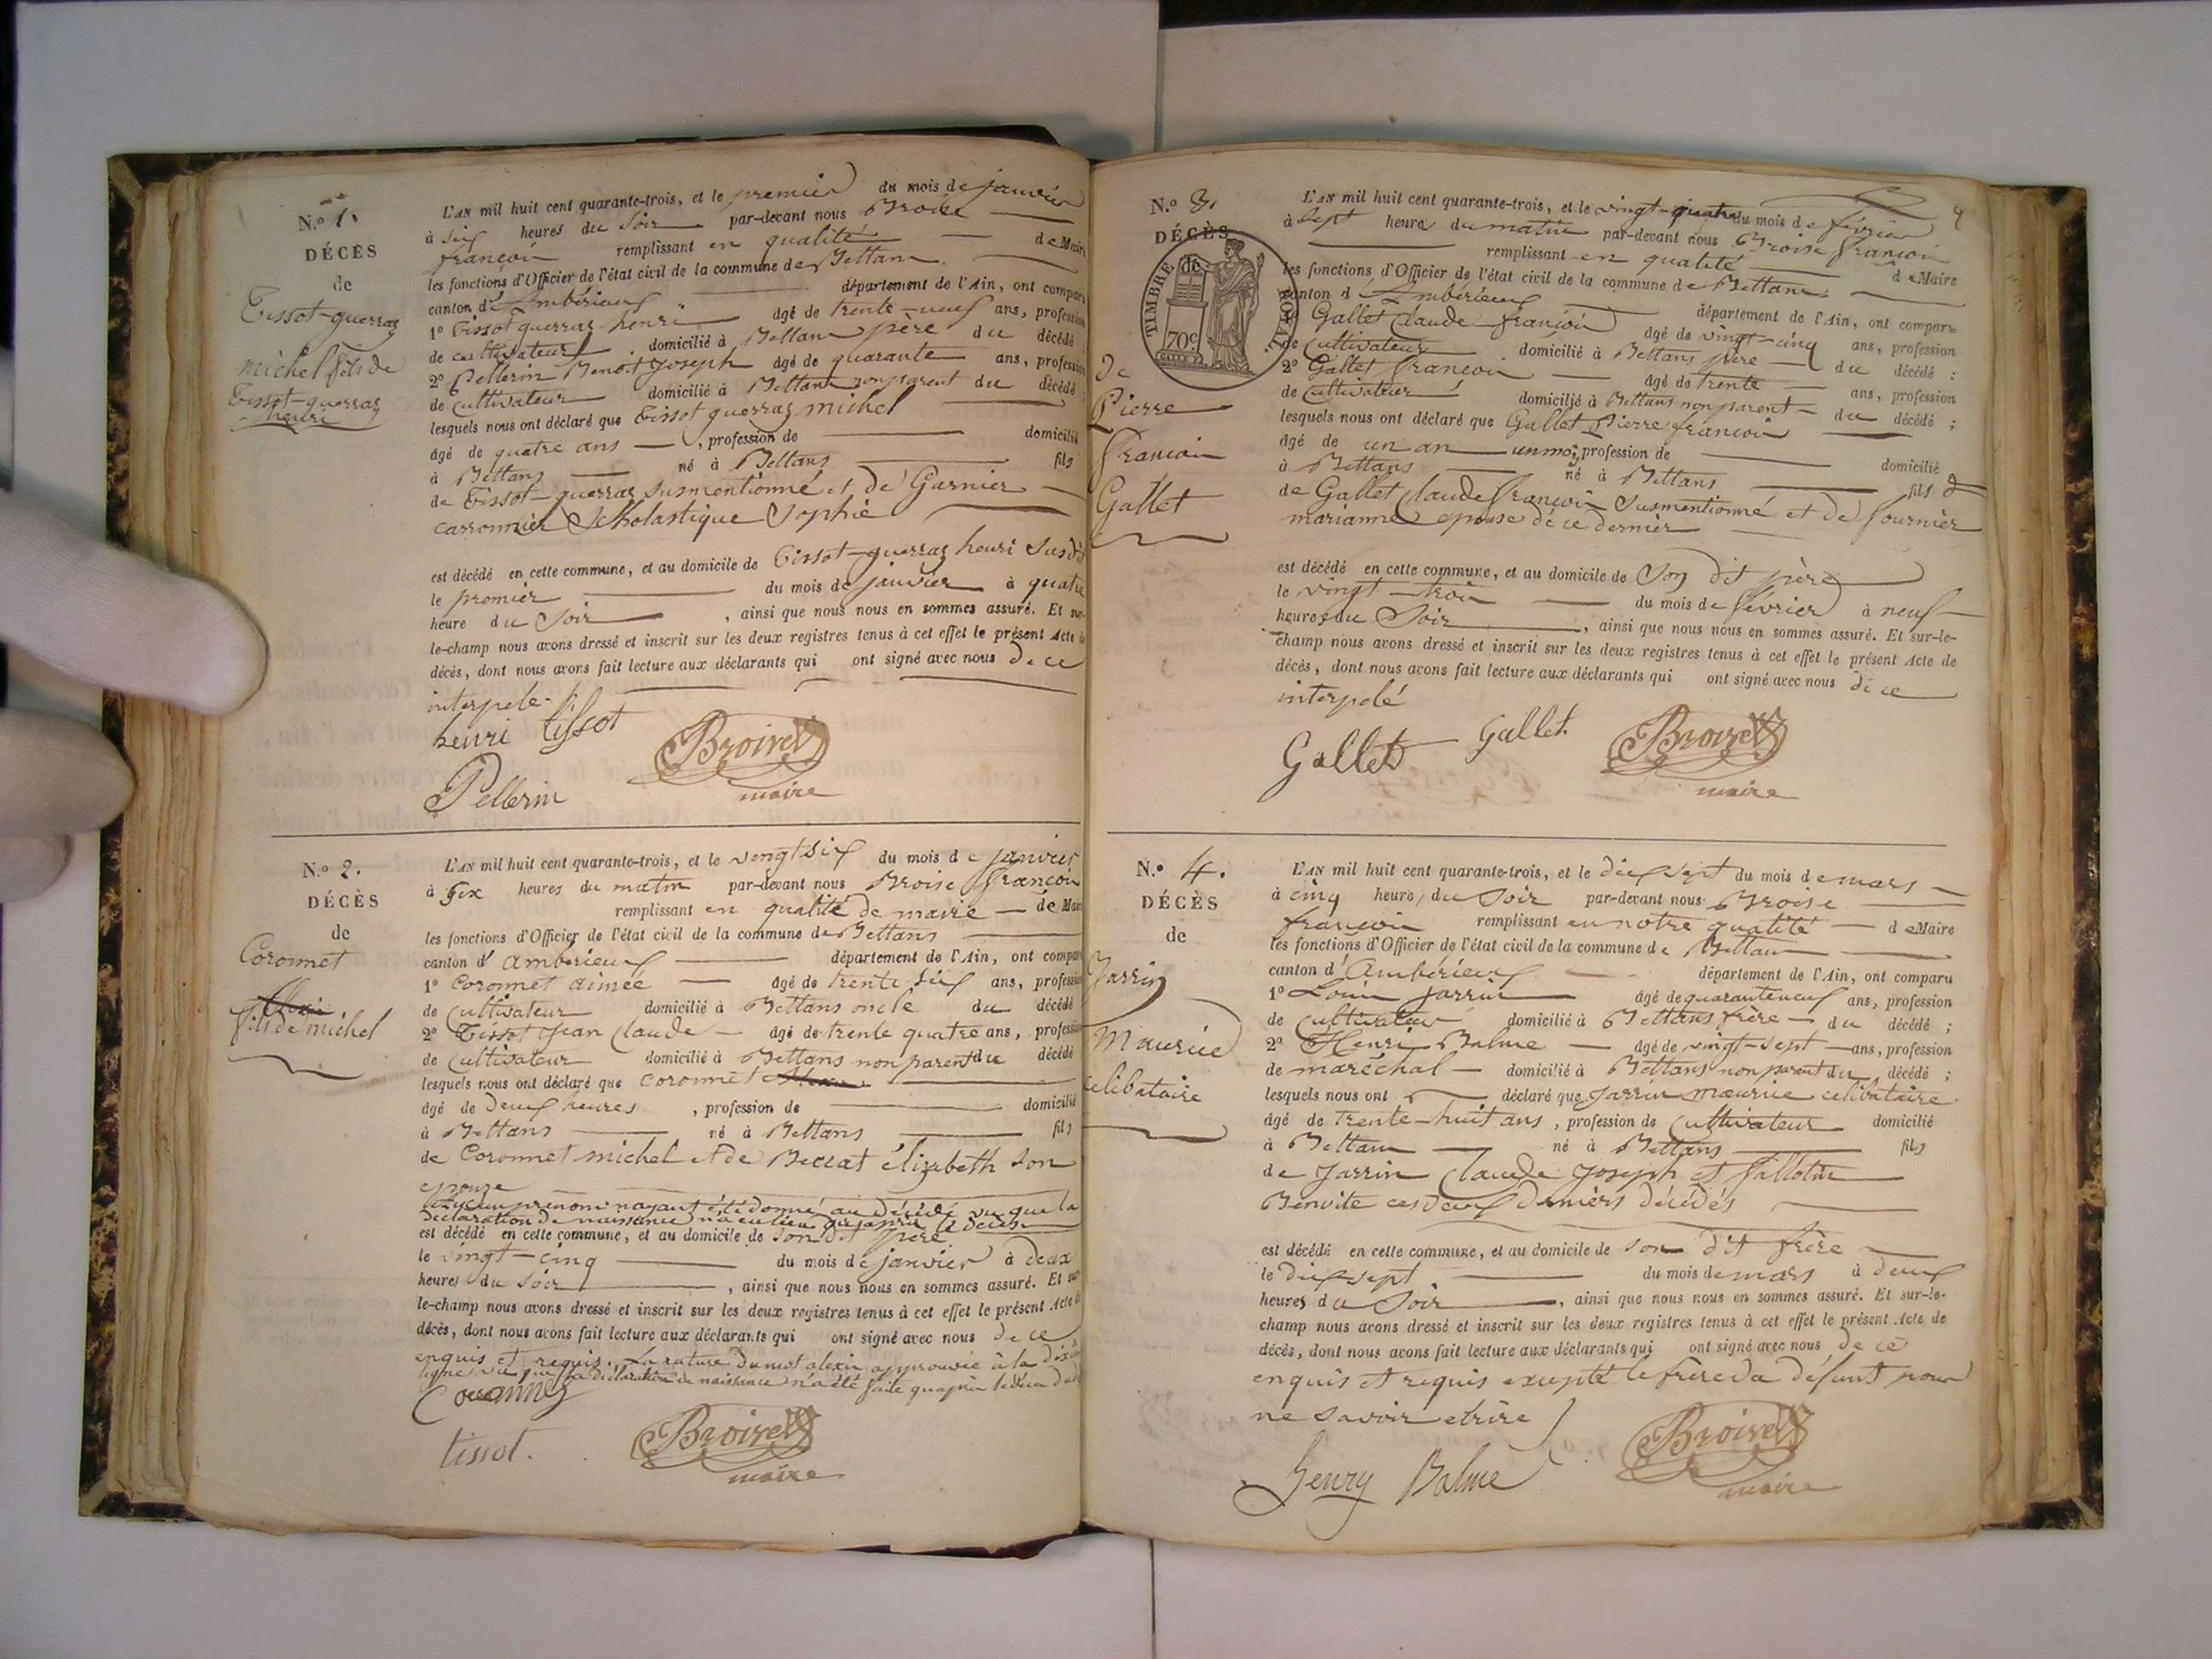 N.º 1.
DÉCÈS
de
Tissot-guerraz
michel fils de
Tissot-guerraz
henri
L'AN mil huit cent quarante-trois, et le premier du mois de janvier
à six heures du Soir par-devant nous Broise
françois remplissant en qualité de Maire
les fonctions d'Officier de l'état civil de la commune de Bettans
canton d'Ambérieux département de l'Ain, ont comparu
1º Tissot guerraz henri âgé de trente-neuf ans, profession
de cultivateur domicilié à Bettans père du décédé
2º Pellerin Benoit Joseph âgé de quarante ans, profession
de Cultivateur domicilié à Bettans non parent du décédé
lesquels nous ont déclaré que Tissot guerraz michel
âgé de quatre ans , profession de domicilié
à Bettans né à Bettans fils
de Tissot-guerraz susmentionné et de Garnier
carronnier Scholastique Sophie
est décédé en cette commune, et au domicile de Tissot-guerraz henri susdit
le premier du mois de janvier à quatre
heure du Soir , ainsi que nous nous en sommes assuré. Et sur-
le-champ nous avons dressé et inscrit sur les deux registres tenus à cet effet le présent Acte de
décès, dont nous avons fait lecture aux déclarants qui ont signé avec nous de ce
interpelé.
henri tissot
Broise
maire
Pellerin
N.º 2.
DÉCÈS
de
Coronnet
fils de michel
L'AN mil huit cent quarante-trois, et le vengt six du mois de janvier
à Six heures du matin par-devant nous Broise françois
remplissant en qualité de maire de Maire
les fonctions d'Officier de l'état civil de la commune de Bettans
canton d'ambérieux département de l'Ain, ont comparu
1º Coronnet aimée âgé de trente six ans, profession
de Cultivateur domicilié à Bettans oncle du décédé
2º Tissot Jean Claude âgé de trente quatre ans, profession
de Cultivateur domicilié à Bettans non parent du décédé
lesquels nous ont déclaré que coronnet
âgé de Deux heures , profession de domicilié
à Bettans né à Bettans fils
de Coronnet michel et de élizabeth son
epouze
aucun prénom nayant été donné au décédé vu que la
déclaration de naissance n'a eu lieu qu'après le décès
est décédé en cette commune, et au domicile de son dit père
le vingt-cinq du mois de janvier à deux
heures du Soir , ainsi que nous nous en sommes assuré. Et sur-
le-champ nous avons dressé et inscrit sur les deux registres tenus à cet effet le présent Acte de
décès, dont nous avons fait lecture aux déclarants qui ont signé avec nous de ce
enquis et requis. La rature du mot alexis approuvée à la
ligne vu que la déclaration de naissance n'a été faite quaprès le décès
tissot.
Broise
maire
N.º 3.
DÉCÈS
de
TIMBRE ROYAL
70c
de
Pierre
françois
Gallet
L'AN mil huit cent quarante-trois, et le vingt-quatre du mois de février
à sept heure du matin par-devant nous Broise françois
remplissant en qualité de Maire
les fonctions d'Officier de l'état civil de la commune de Bettans
canton d'Ambérieux département de l'Ain, ont comparu
Gallet Claude françois âgé de vingt-cinq ans, profession
de Cultivateur domicilié à Bettans père du décédé :
2º Gallet françois âgé de trente ans, profession
de Cultivateur domicilié à Bettans non parent du décédé ;
lesquels nous ont déclaré que Gallet Pierre françois
âgé de un an un mois, profession de domicilié
à Bettans né à Bettans fils
de Gallet Claude françois Susmentionné et de fournier
marianne epouse de ce dernier
est décédé en cette commune, et au domicile de Son dit père
le vingt-trois du mois de février à neuf
heures du Soir , ainsi que nous nous en sommes assuré. Et sur-le-
champ nous avons dressé et inscrit sur les deux registres tenus à cet effet le présent Acte de
décès, dont nous avons fait lecture aux déclarants qui ont signé avec nous de ce
interpelé
Gallet Gallet
Broise
maire
N.º 4.
DÉCÈS
de
Jarrin
Maurice
celibataire
L'AN mil huit cent quarante-trois, et le dix sept du mois de mars
à cinq heure du Soir par-devant nous Broise
françois remplissant en notre qualité de Maire
les fonctions d'Officier de l'état civil de la commune de Bettans
canton d'Ambérieux département de l'Ain, ont comparu
1º Louis Jarrin âgé de quarante neuf ans, profession
de Cultivateur domicilié à Bettans frère du décédé ;
2º Henri Balme âgé de vingt-sept ans, profession
de maréchal domicilié à Bettans non parent du décédé ;
lesquels nous ont déclaré que Jarrin maurice celibataire
âgé de trente-huit ans , profession de Cultivateur domicilié
à Bettans né à Bettans fils
de Jarrin Claude Joseph et
Benoite ces deux derniers décédés
est décédé en cette commune, et au domicile de son dit frère
le dix sept du mois de mars à deux
heures du Soir , ainsi que nous nous en sommes assuré. Et sur-le-
champ nous avons dressé et inscrit sur les deux registres tenus à cet effet le présent Acte de
décès, dont nous avons fait lecture aux déclarants qui ont signé avec nous de ce
enquis et requis excepté le frère du défunt pour
ne savoir ecrire
Henry Balme
Broise
maire